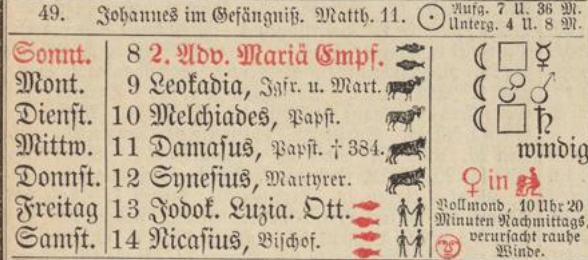 49. Johannes im Gefängniß. Matth. 11. ☉ Aufg. 7 U. 36 M.
Unterg. 4 U. 8 M.
Sonnt. 8 2. Adv. Mariä Empf. ☾ □ ☿
Mont. 9 Leokadia, Jgfr. u. Mart. ☾ ☍ ♂
Dienst. 10 Melchiades, Papst. ☾ □ ♄
Mittw. 11 Damasus, Papst. † 384. windig
Donnst. 12 Synesius, Martyrer. ♀ in
Freitag 13 Jodok. Luzia. Ott. Vollmond, 10 Uhr 20
Minuten Nachmittags,
Samst. 14 Nicasius, Bischof. verursacht rauhe
Winde.